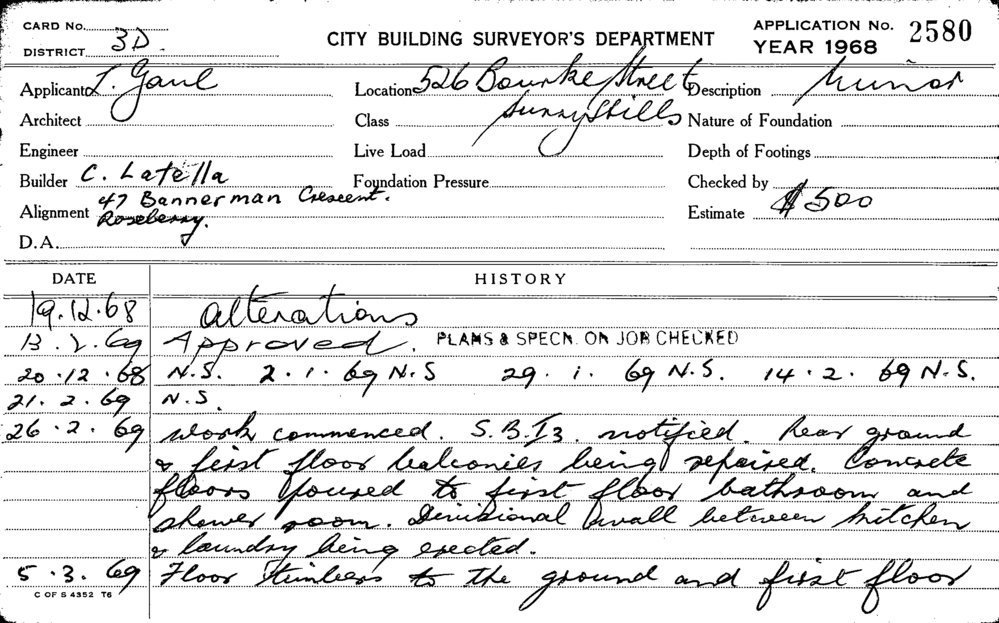 CARD No.
DISTRICT 3D.
CITY BUILDING SURVEYOR'S DEPARTMENT
APPLICATION No. 2580
YEAR 1968
Applicant L. Gaul
Location 526 Bourke Street
Description Minor
Architect
Class Surry Hills
Nature of Foundation
Engineer
Live Load
Depth of Footings
Builder C. Latella
Foundation Pressure
Checked by
47 Bannerman Crescent.
Alignment Roseberry.
Estimate $500
D.A.
DATE HISTORY
19.12.68 Alterations
13.2.69 Approved. PLANS & SPECN. ON JOB CHECKED
20.12.68 N.S. 2.1.69 N.S 29.1.69 N.S. 14.2.69 N.S.
21.2.69 N.S.
26.2.69 work commenced. S.B.I3. notified. Rear ground
& first floor balconies being repaired. Concrete
floors poured to first floor bathroom and
shower room. Divisional wall between kitchen
& laundry being erected.
5.3.69 Floor timbers to the ground and first floor
C OF S 4352 T6